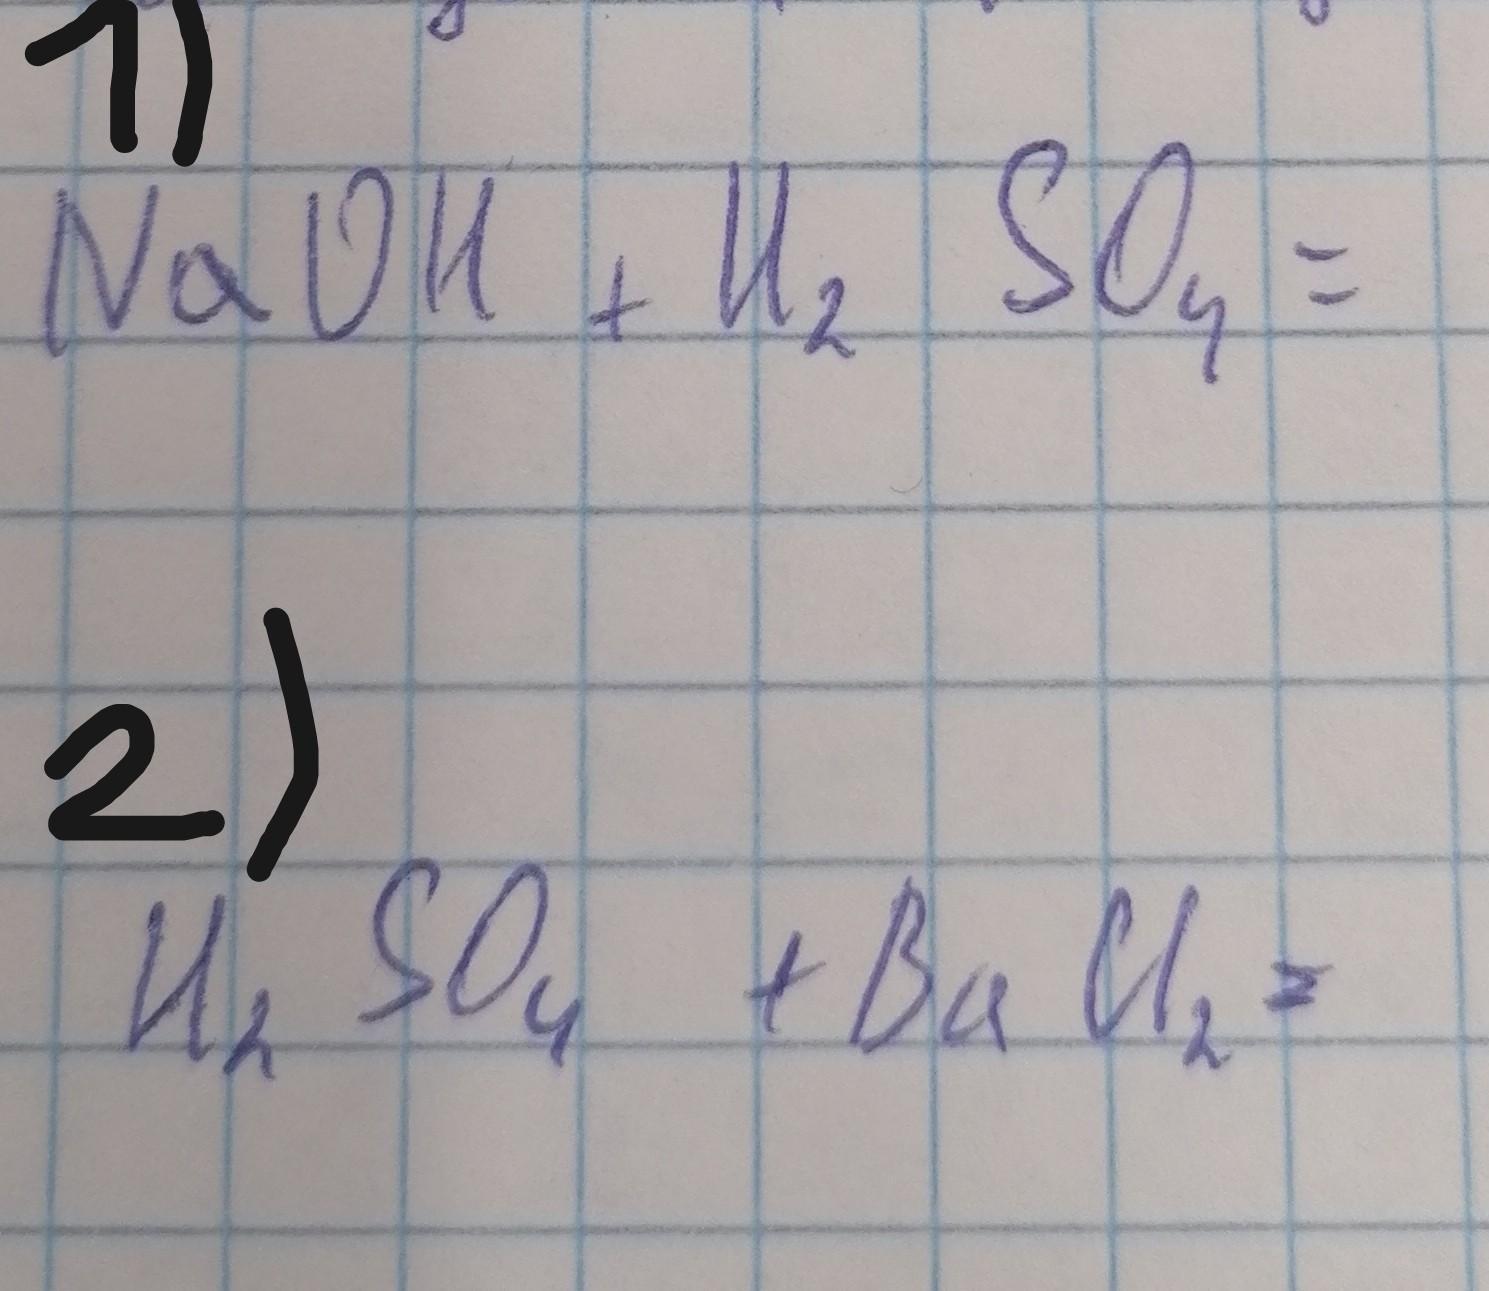 1)
NaOH + H₂ SO₄ =
2)
H₂ SO₄ + Ba Cl₂ =